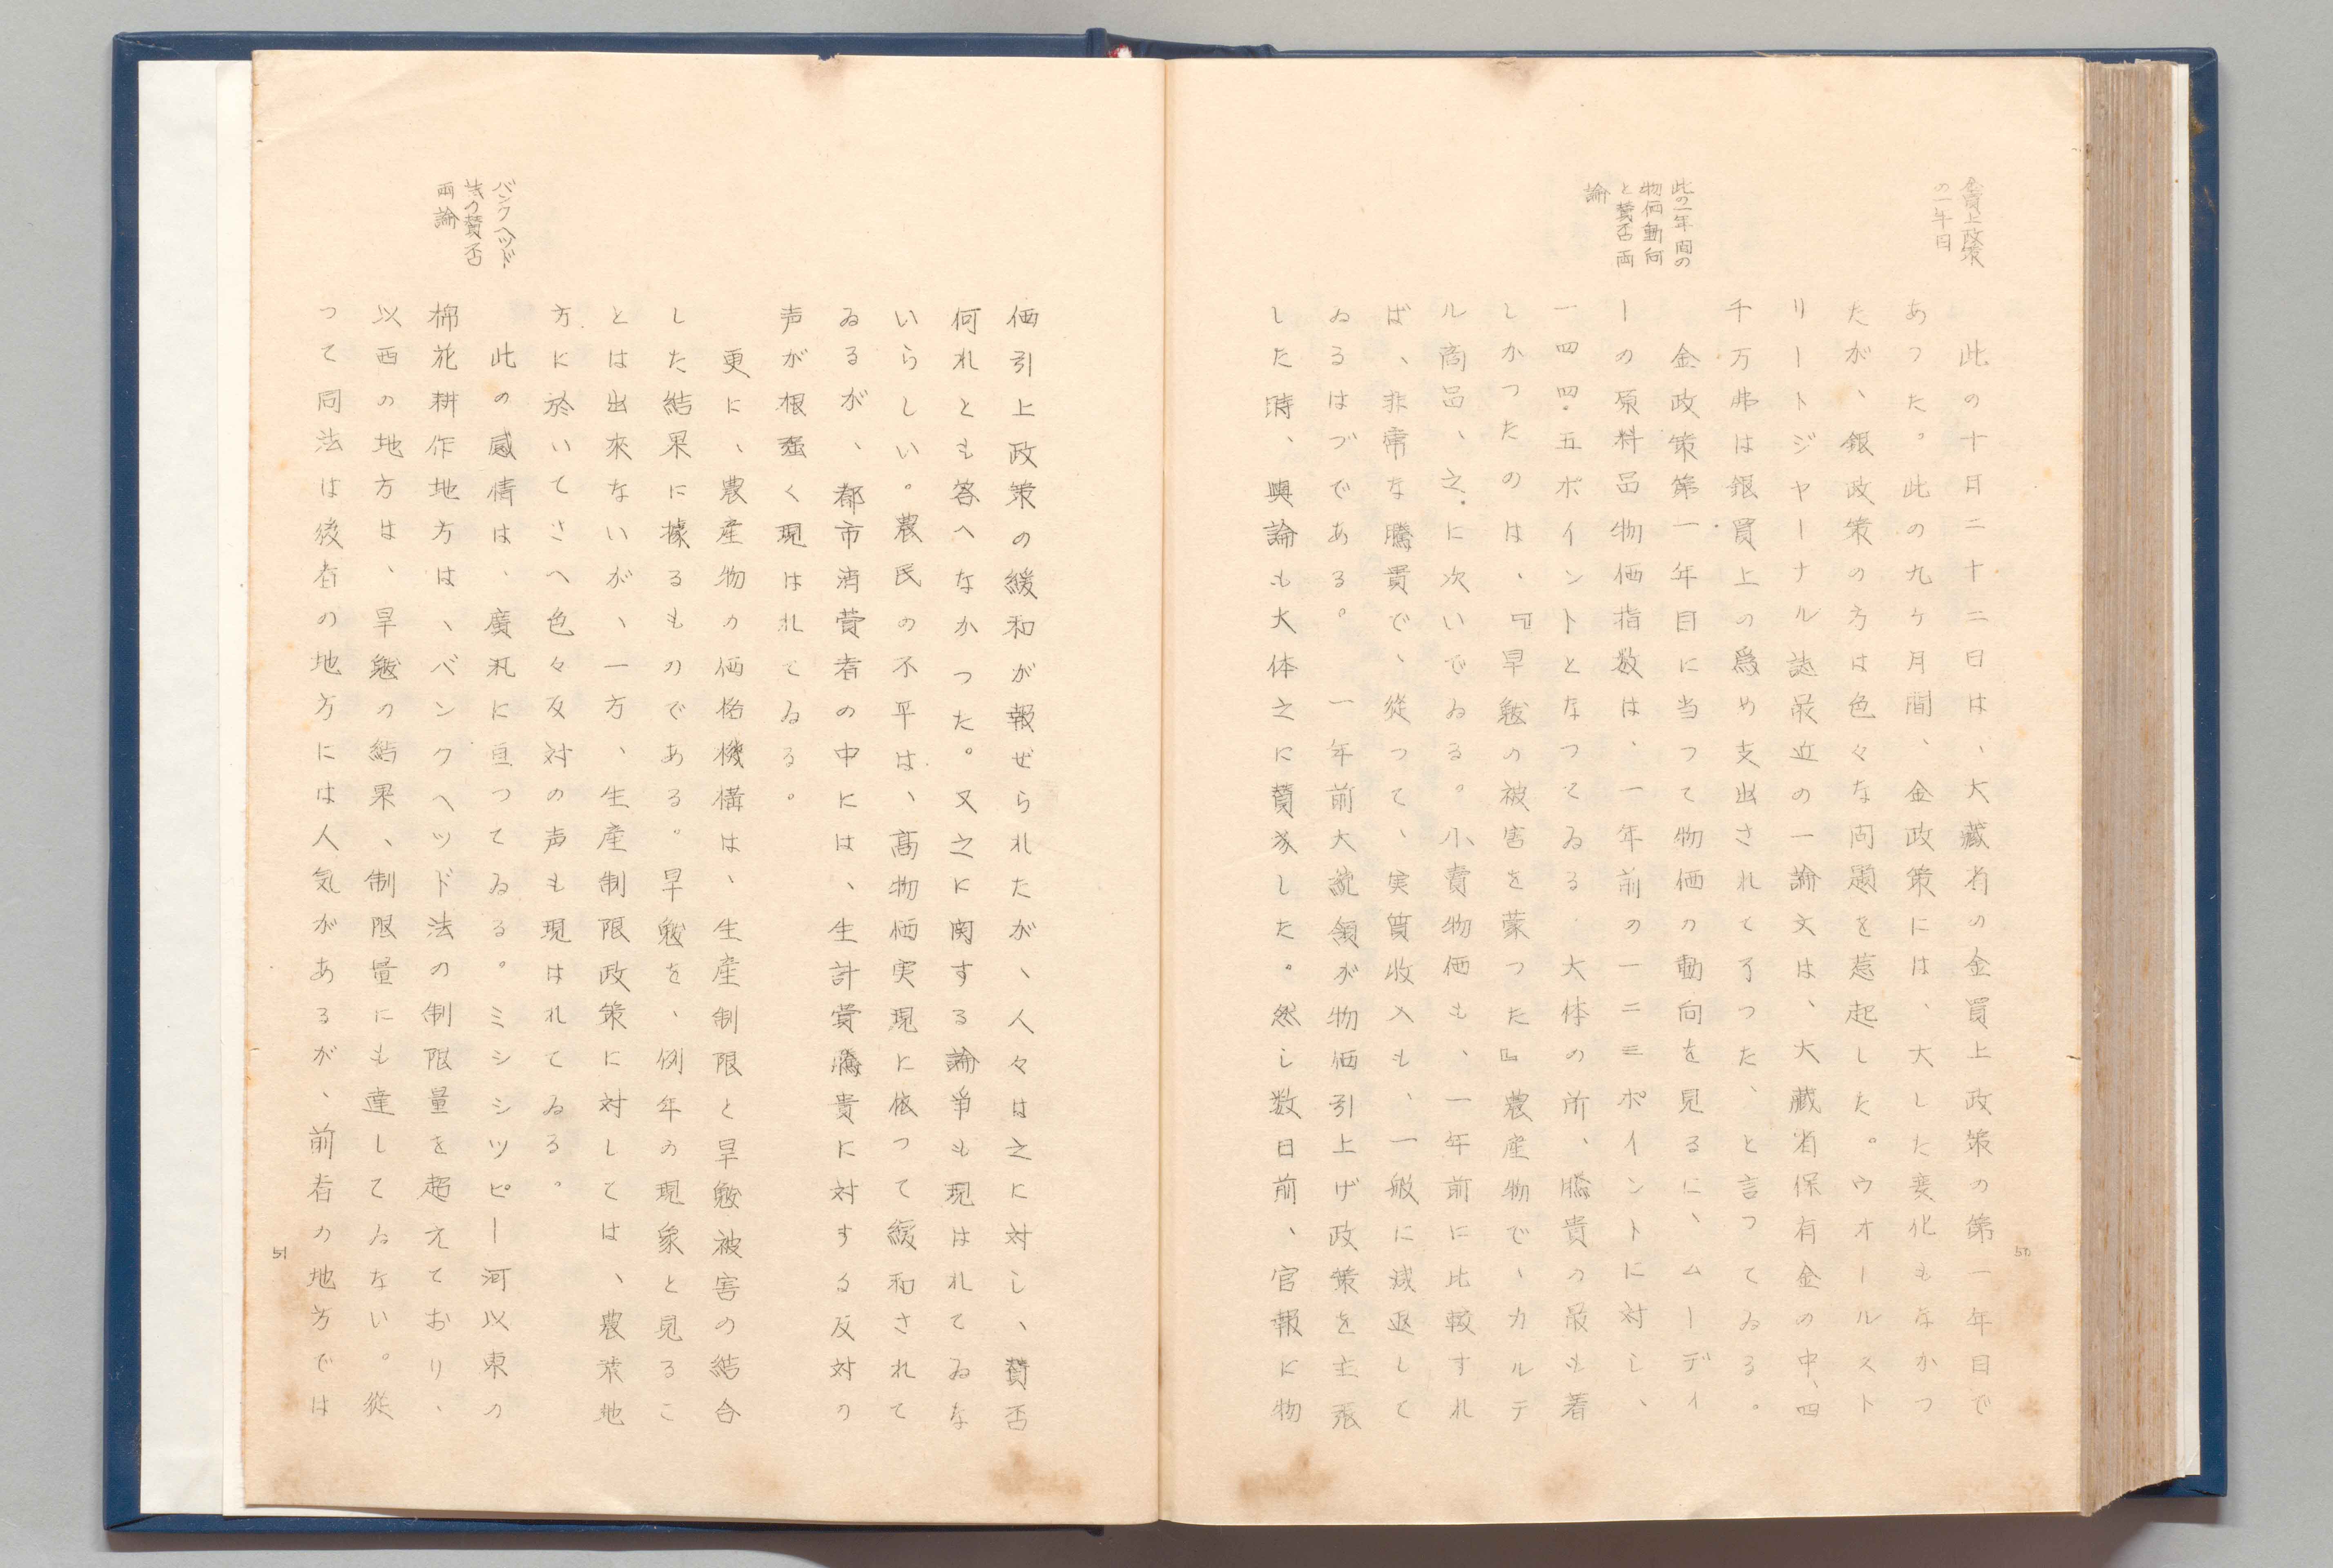 金買上政策
の一年目
此の十月二十二日は、大藏省の金買上政策の第一年目で
あつた。此の九ヶ月間、金政策には、大した変化もなかつ
たが、銀政策の方は色々な問題を惹起した。ウオールスト
リートジヤーナル誌最近の一論文は、大藏省保有金の中、四
千万弗は銀買上の爲め支出されて了つた、と言つてゐる。
此の一年間の
物価動向
と賛否両
論
金政策第一年目に当つて物価の動向を見るに、ムーディ
ーの原料品物価指数は、一年前の一二三ポイントに対し、
一四四.五ポイントとなつてゐる.大体の所、騰貴の最も著
しかつたのは、『旱魃の被害を蒙つた』農産物で、カルテ
ル商品、之に次いでゐる。小賣物価も、一年前に比較すれ
ば、非常な騰貴で、從つて、実質收入も、一般に減退して
ゐるはづである。 一年前大統領が物価引上げ政策を主張
した時、輿論も大体之に賛成した。然し数日前、官報に物
50
価引上政策の緩和が報ぜられたが、人々は之に対し、賛否
何れとも答へなかつた。又之に関する論争も現はれてゐな
いらしい。農民の不平は、高物価実現に依つて緩和されて
ゐるが、都市消費者の中には、生計費騰貴に対する反対の
声が根强く現はれてゐる。
更に、農産物の価格機構は、生産制限と旱魃被害の結合
した結果に據るものである。旱魃を、例年の現象と見るこ
とは出來ないが、一方、生産制限政策に対しては、農業地
方に於いてさへ色々反対の声も現はれてゐる。
バンクヘツド
法の賛否
両論
此の感情は、廣汎に亘つてゐる。ミシシツピー河以東の
棉花耕作地方は、バンクヘツド法の制限量を超えており、
以西の地方は、旱魃の結果、制限量にも達してゐない。從
つて同法は後者の地方には人気があるが、前者の地方では
51